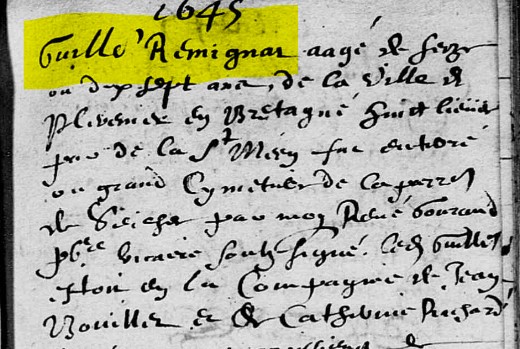 1645
Guille' Remignar aagé de seze
ou dix sept ans, de la ville de
en Bretagne huict lieues
de la St Meen fut enterré
ou grand Cymetiere de la parr
de par moy René Gourand
pbre vicaire soubsigné. led Guille
estoit en la Compagnie de Jean
Bouiller et de Catherine Richard